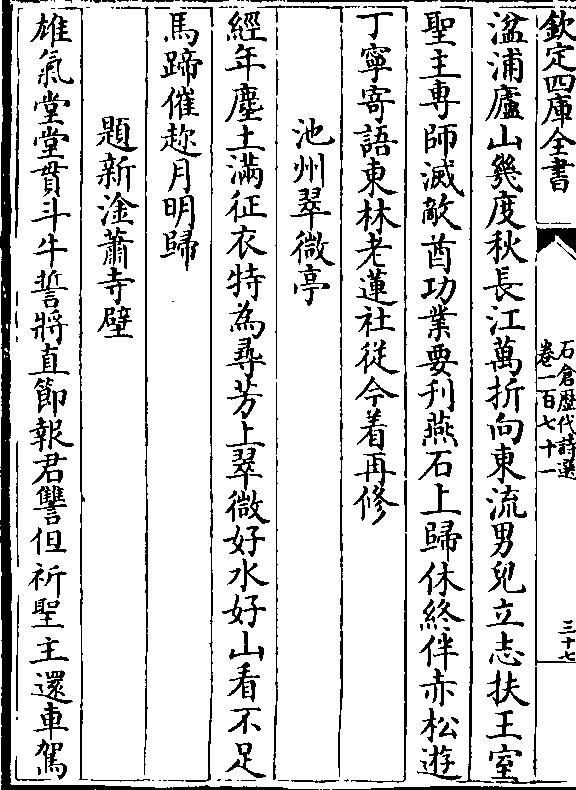 欽定四庫全書
石倉歴代詩選
卷一百七十一
三十七
湓浦廬山幾度秋長江萬折向東流男兒立志扶王室
聖主専師滅敵酋功業要刋燕石上歸休終伴赤松遊
丁寧寄語東林老蓮社從今着再修
池州翠微亭
經年塵土滿征衣特為尋芳上翠微好水好山看不足
馬蹄催趂月明歸
題新淦蕭寺壁
雄氣堂堂貫斗牛誓將直節報君讐但祈聖主還車駕